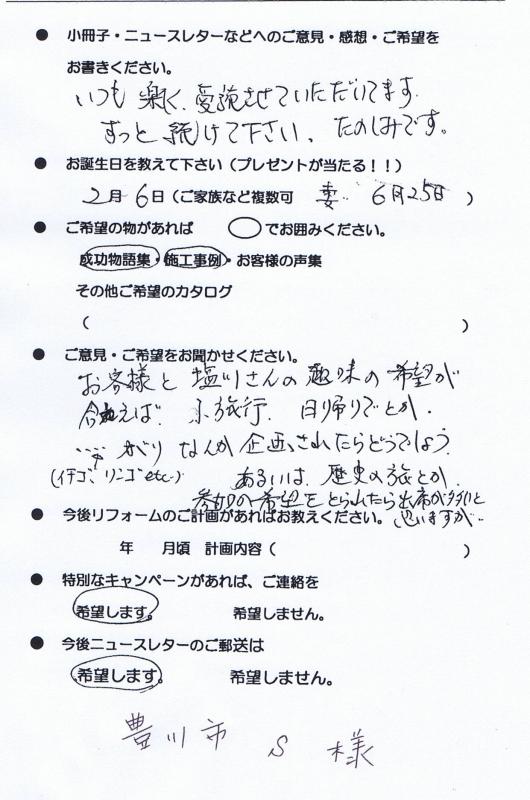 ● 小冊子・ニュースレターなどへのご意見・感想・ご希望を
お書きください。
いつも楽く、愛読させていただいてます。
ずっと続けて下さい、たのしみです。
● お誕生日を教えて下さい（プレゼントが当たる！！）
2月 6日（ご家族など複数可 妻‥ 6月25日 ）
● ご希望の物があれば ◯でお囲みください。
成功物語集・施工事例・お客様の声集
その他ご希望のカタログ
（ ）
● ご意見・ご希望をお聞かせください。
お客様と塩川さんの趣味の希望が
合えば、小旅行、日帰りでとか、
‥‥がりなんか企画されたらどうでしょう
(イチゴ、リンゴetc‥) あるいは、歴史の旅とか、
参加の希望をとられたら出席が多いと
思いますが‥
● 今後リフォームのご計画があればお教えください。
年 月頃 計画内容（ ）
● 特別なキャンペーンがあれば、ご連絡を
希望します。 希望しません。
● 今後ニュースレターのご郵送は
希望します。 希望しません。
豊川市 S 様